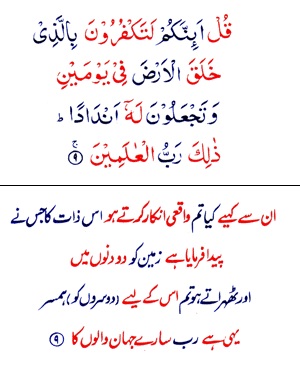 قُلْ اَىِٕنَّكُمْ لَتَكْفُرُوْنَ بِالَّذِىْ
خَلَقَ الْاَرْضَ فِىْ يَوْمَيْنِ
وَتَجْعَلُوْنَ لَهٗۤ اَنْدَادًا ؕ
ذٰلِكَ رَبُّ الْعٰلَمِيْنَ ۚ ﴿۹﴾
ان سے کہیے کیا تم واقعی انکار کرتے ہو اس ذات کا جس نے
پیدا فرمایا ہے زمین کو دو دنوں میں
اور ٹھہراتے ہو تم اس کے لیے (دوسروں کو) ہمسر
یہی ہے رب سارے جہان والوں کا ﴿۹﴾